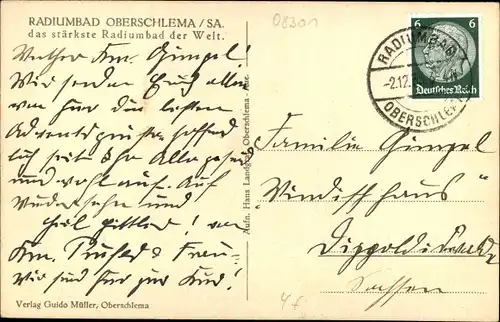 08301
RADIUMBAD OBERSCHLEMA/SA.
das stärkste Radiumbad der Welt.
6 6
Deutsches Reich
RADIUMBAD
-2.12.
OBERSCHLEMA
Werther Km. Gimpel!
Wir senden Euch allen
von hier die besten
Adventsgrüsse hoffend
lich seid Ihr Alle gesund
und wohl auf. Auf
Wiedersehn und
Heil Hittler! von
Km. und Frau
Wir sind hier zur Kur!
Familie Gimpel
"Windisch haus"
Dippoldiswalde
Sachsen
Aufn. Hans Landgraf, Oberschlema - Aue.
Verlag Guido Müller, Oberschlema